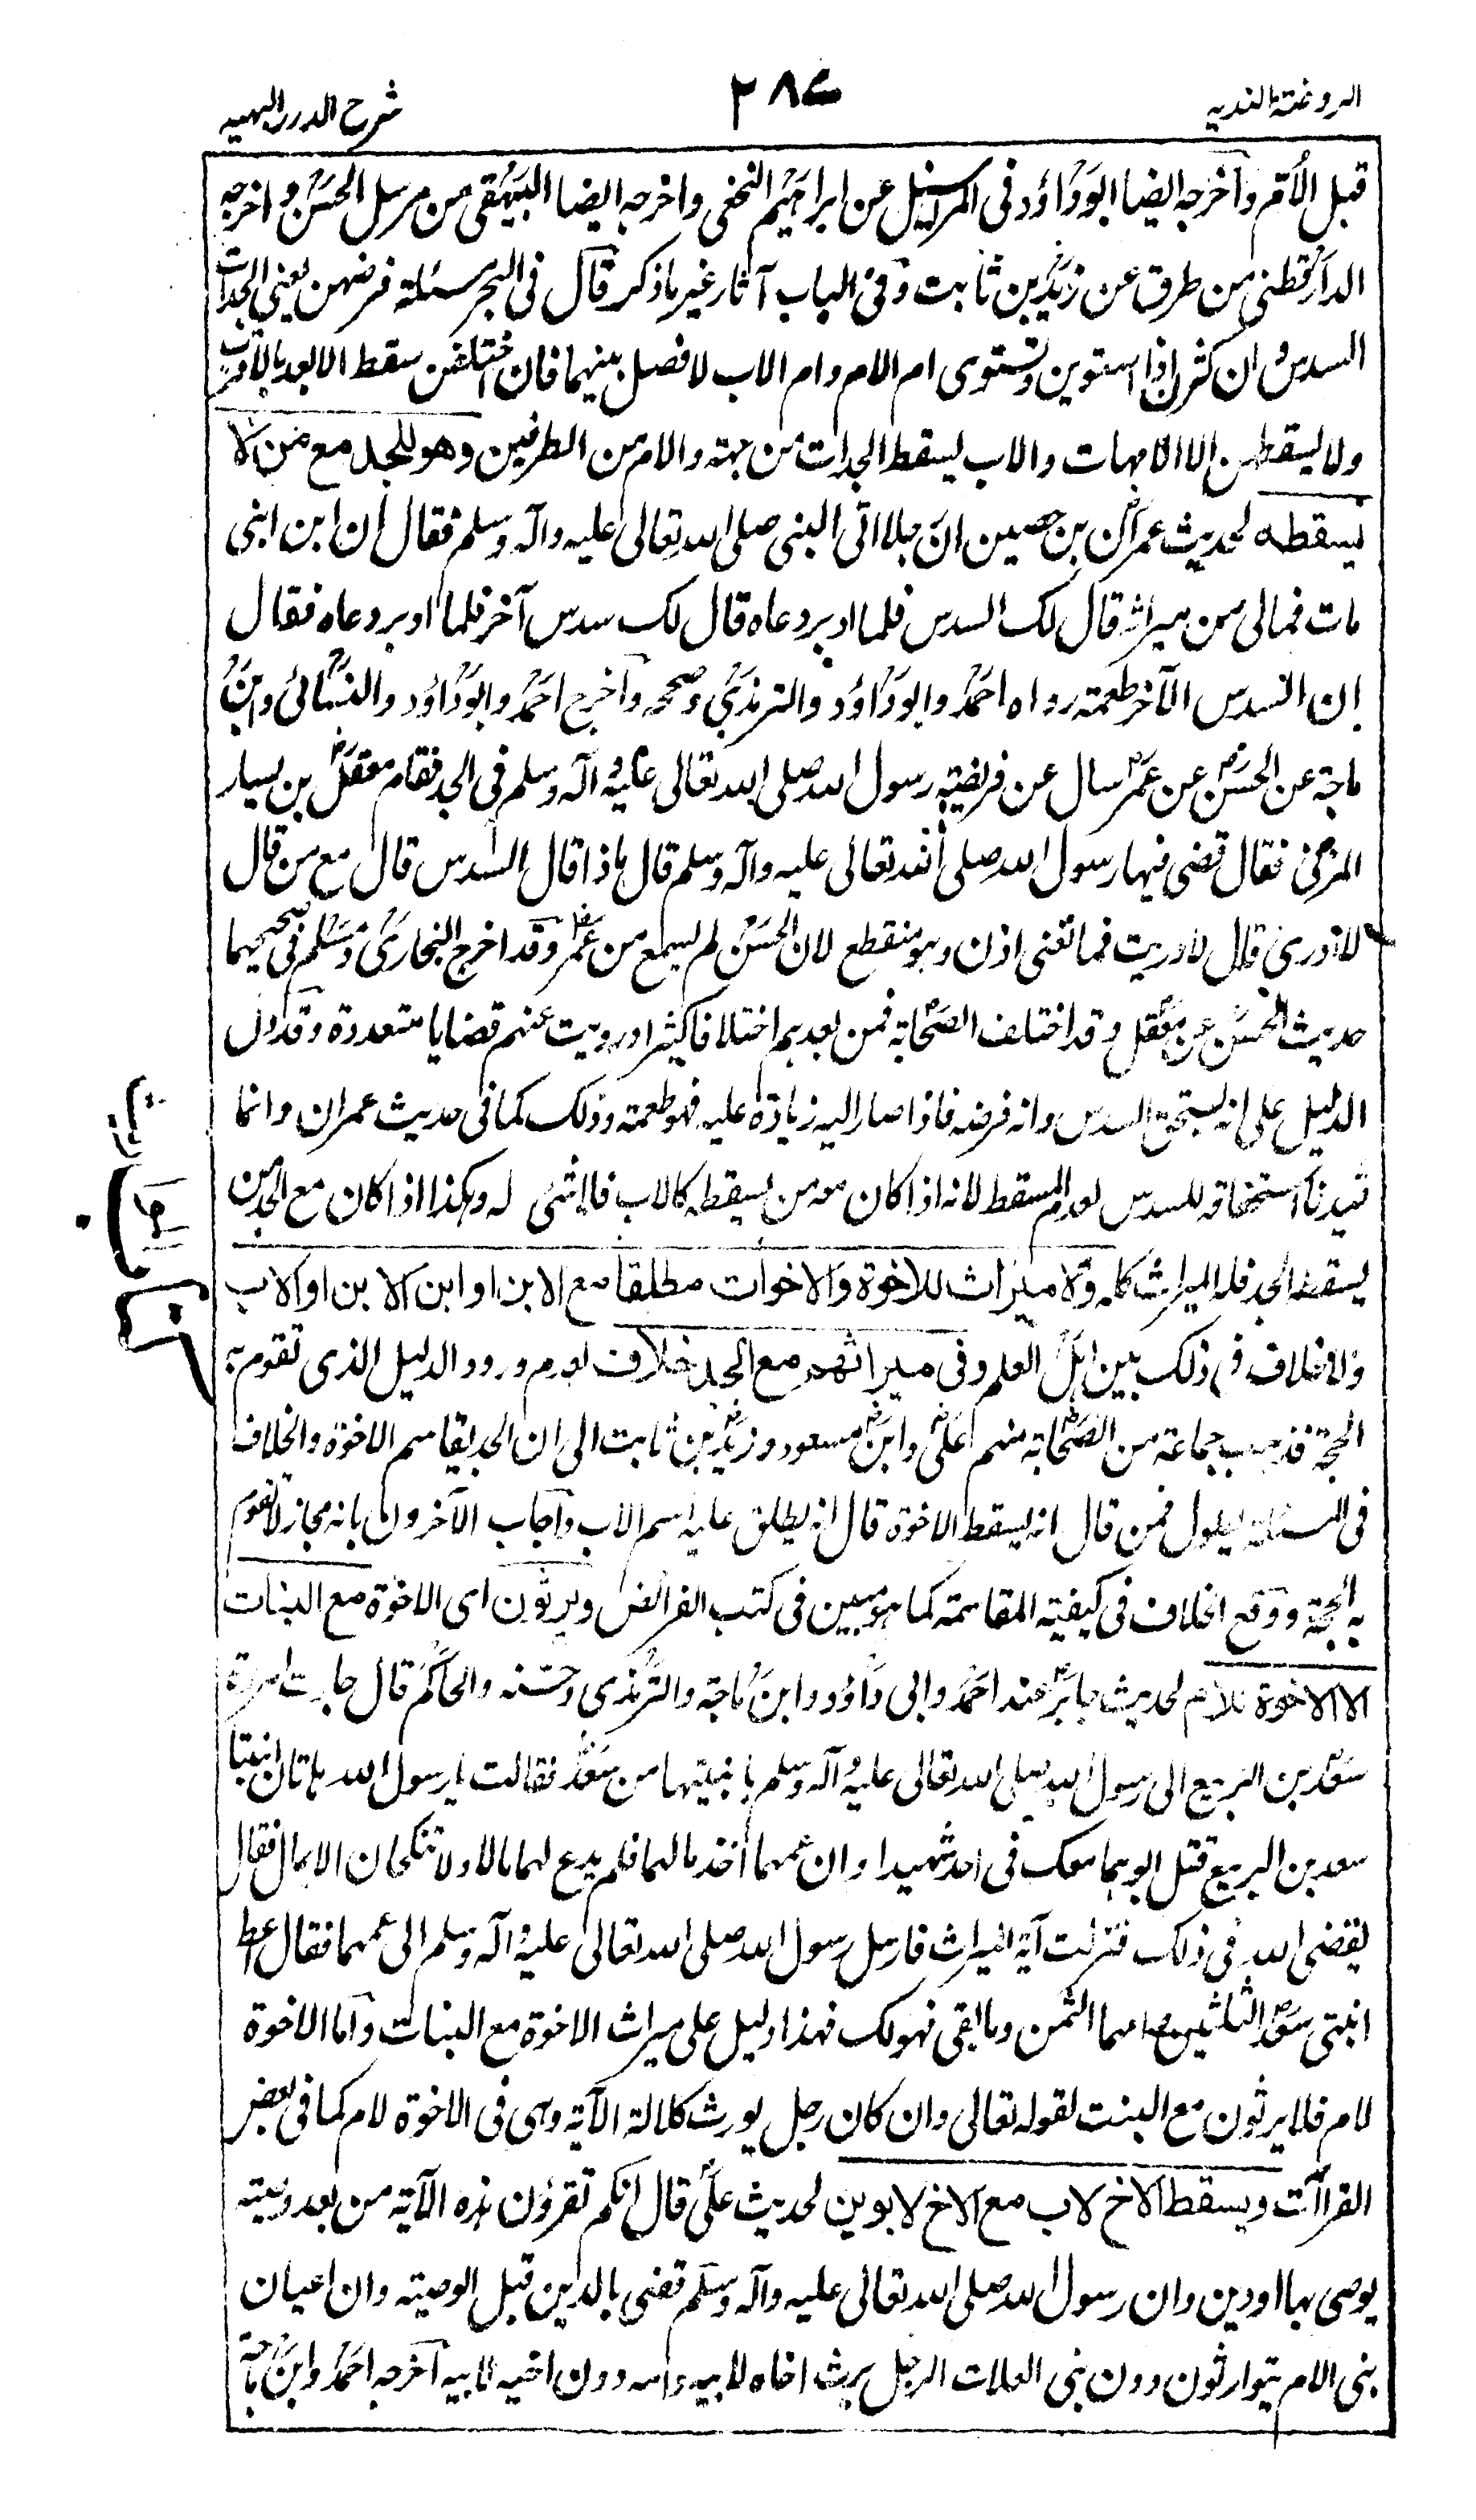 الروضة الندية
٢٨٧
شرح الدرر البهية
قبل الأم وأخرجه ايضا ابوداؤد فى المراسيل عن ابراهيم النخعى واخرجه ايضا البيهقى من مرسل الحسن واخرجه
الدارقطنى من طرق عن زيد بن ثابت وفى الباب آثار غير ما ذكر قال فى البحر مسئلة فرضهن يعنى الجدات
السدس وان كثرن اذا استوين وتستوى ام الام وام الاب لا فصل بينهما فان اختلفن سقط الابعد بالاقرب
ولا يسقطهن الا الامهات والاب يسقط الجدات من جهته والام من الطرفين وهو للجد مع من لا
يسقطه لحديث عمران بن حصين ان رجلا اتى النبى صلى الله تعالى عليه وآله وسلم فقال ان ابن ابنى
مات فمالى من ميراثه قال لك السدس فلما ادبر دعاه قال لك سدس آخر فلما ادبر دعاه فقال
ان السدس الآخر طعمة رواه احمد وابوداؤد والترمذى وصححه وأخرج احمد وابوداؤد والنسائى وابن
ماجة عن الحسن عن عمر سال عن فريضة رسول الله صلى الله تعالى عليه وآله وسلم فى الجد فقام معقل بن يسار
المزنى فقال قضى فيها رسول الله صلى الله تعالى عليه وآله وسلم قال ماذا قال السدس قال مع من قال
لا ادرى قال لا دريت فما تغنى اذن وهو منقطع لان الحسن لم يسمع من عمر وقد اخرج البخارى ومسلم فى صحيحهما
حديث الحسن عن معقل وقد اختلف الصحابة فمن بعدهم اختلافا كثيرا ورويت عنهم قضايا متعددة وقد دل
الدليل على انه يستحق السدس وانه فرضه فاذا صار اليه زيادة عليه فهو طعمة وذلك كما فى حديث عمران وانما
قيدنا استحقاقه للسدس بعدم المسقط لانه اذا كان معه من يسقطه كالاب فلا شئ له وهكذا اذا كان مع الجد من
يسقطه الجد فله الميراث كله ولا ميراث للاخوة والاخوات مطلقا مع الابن او ابن الابن او الاب
ولا خلاف فى ذلك بين اهل العلم وفى ميراثهم مع الجد خلاف لعدم ورود الدليل الذى تقوم به
الحجة فذهب جماعة من الصحابة منهم على وابن مسعود وزيد بن ثابت الى ان الجد يقاسم الاخوة والخلاف
فى المسئلة يطول فمن قال انه يسقط الاخوة قال انه يطلق عليه اسم الاب وأجاب الآخرون بانه مجاز لا تقوم
به الحجة ووقع الخلاف فى كيفية المقاسمة كما هو مبين فى كتب الفرائض ويرثون اى الاخوة مع البنات
الا الاخوة للام لحديث جابر عند احمد وابى داؤد وابن ماجة والترمذى وحسنه والحاكم قال جاءت امرءة
سعد بن الربيع الى رسول الله صلى الله تعالى عليه وآله وسلم بابنتيها من سعد فقالت يا رسول الله هاتان ابنتا
سعد بن الربيع قتل ابوهما معك فى احد شهيدا وان عمهما أخذ مالهما فلم يدع لهما مالا ولا تنكحان الا بمال فقال
يقضى الله فى ذلك فنزلت آية الميراث فارسل رسول الله صلى الله تعالى عليه وآله وسلم الى عمهما فقال اعط
ابنتى سعد الثلثين وامهما الثمن وما بقى فهو لك فهذا دليل على ميراث الاخوة مع البنات واما الاخوة
لام فلا يرثون مع البنت لقوله تعالى وان كان رجل يورث كلالة الآية وهى فى الاخوة لام كما فى بعض
القراآت ويسقط الاخ لاب مع الاخ لابوين لحديث على قال انكم تقرؤن هذه الآية من بعد وصية
يوصى بها اودين وان رسول الله صلى الله تعالى عليه وآله وسلم قضى بالدين قبل الوصية وان اعيان
بنى الام يتوارثون دون بنى العلات الرجل يرث اخاه لابيه وامه دون اخيه لابيه أخرجه احمد وابن ماجة